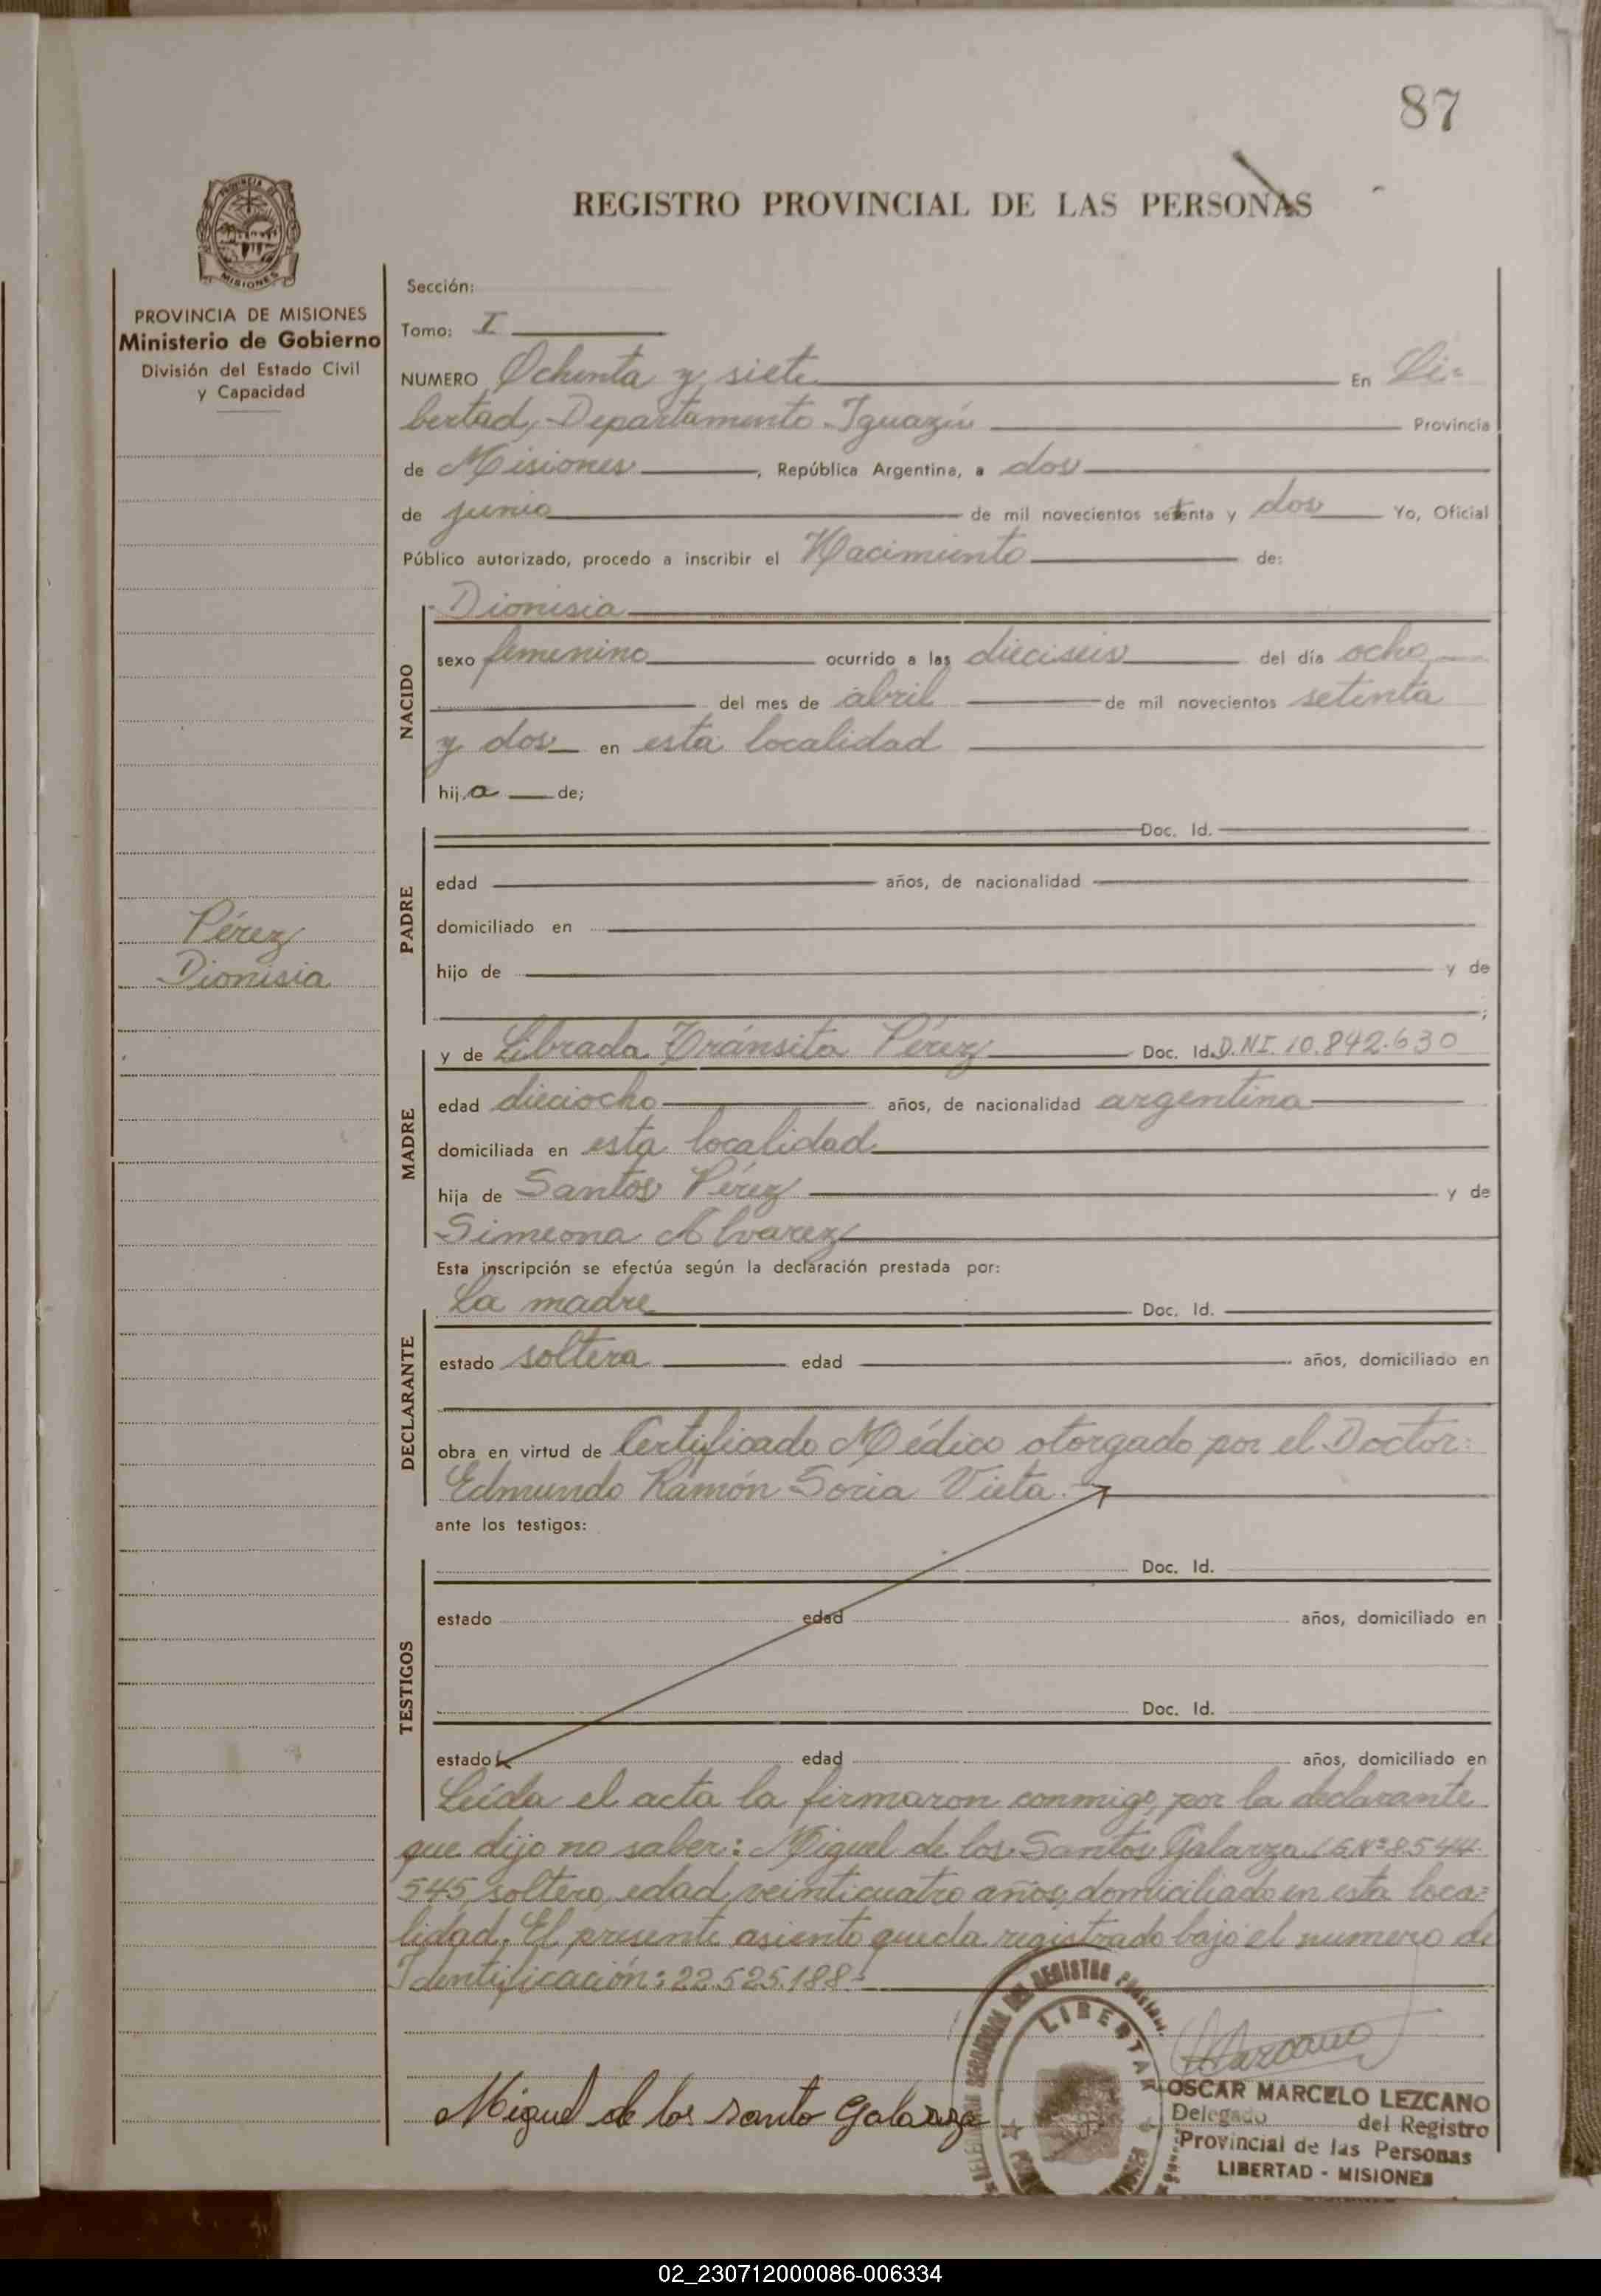 87
REGISTRO PROVINCIAL DE LAS PERSONAS
MISIONES
PROVINCIA DE MISIONES
Ministerio de Gobierno
División del Estado Civil
y Capacidad
Pérez
Dionisia
Sección:
Tomo: I
NUMERO Ochenta y siete En Li=
bertad, Departamento Iguazú Provincia
de Misiones, República Argentina, a dos
de junio de mil novecientos setenta y dos Yo, Oficial
Público autorizado, procedo a inscribir el Nacimiento de:
NACIDO
Dionisia
sexo femenino ocurrido a las dieciseis del día ocho
del mes de abril de mil novecientos setenta
y dos en esta localidad
hija de;
PADRE
Doc. Id.
edad años, de nacionalidad
domiciliado en
hijo de y de
;
MADRE
y de Librada Tránsita Pérez Doc. Id. D.NI. 10.842.630
edad dieciocho años, de nacionalidad argentina
domiciliada en esta localidad
hija de Santos Pérez y de
Simeona Alvarez
Esta inscripción se efectúa según la declaración prestada por:
DECLARANTE
La madre Doc. Id.
estado soltera edad años, domiciliado en
obra en virtud de Certificado Médico otorgado por el Doctor:
Edmundo Ramón Soria Vieta.-
ante los testigos:
TESTIGOS
Doc. Id.
estado edad años, domiciliado en
Doc. Id.
estado edad años, domiciliado en
Leída el acta la firmaron conmigo, por la declarante
que dijo no saber: Miguel de los Santos Galarza L.E.Nº 8.544.
545, soltero, edad veinticuatro años, domiciliado en esta loca=
lidad. El presente asiento queda registrado bajo el numero de
Identificación: 22.525.188.-
LIBERTAD
Miguel de los santo Galarza
OSCAR MARCELO LEZCANO
Delegado del Registro
Provincial de las Personas
LIBERTAD - MISIONES
02_230712000086-006334